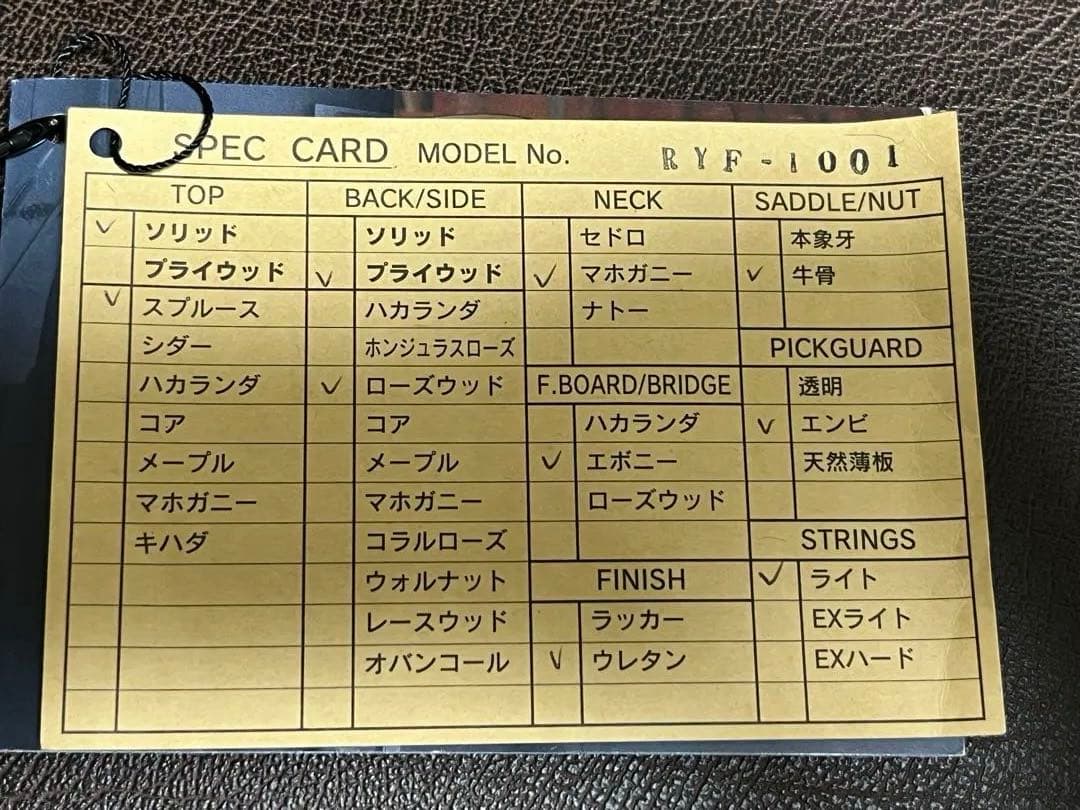 SPEC CARD MODEL No. RYF-1001
TOP BACK/SIDE NECK SADDLE/NUT
✓ ソリッド ソリッド セドロ 本象牙
プライウッド ✓ プライウッド ✓ マホガニー ✓ 牛骨
✓ スプルース ハカランダ ナトー
シダー ホンジュラスローズ PICKGUARD
ハカランダ ✓ ローズウッド F.BOARD/BRIDGE 透明
コア コア ハカランダ ✓ エンビ
メープル メープル ✓ エボニー 天然薄板
マホガニー マホガニー ローズウッド
キハダ コラルローズ STRINGS
ウォルナット FINISH ✓ ライト
レースウッド ラッカー EXライト
オバンコール ✓ ウレタン EXハード